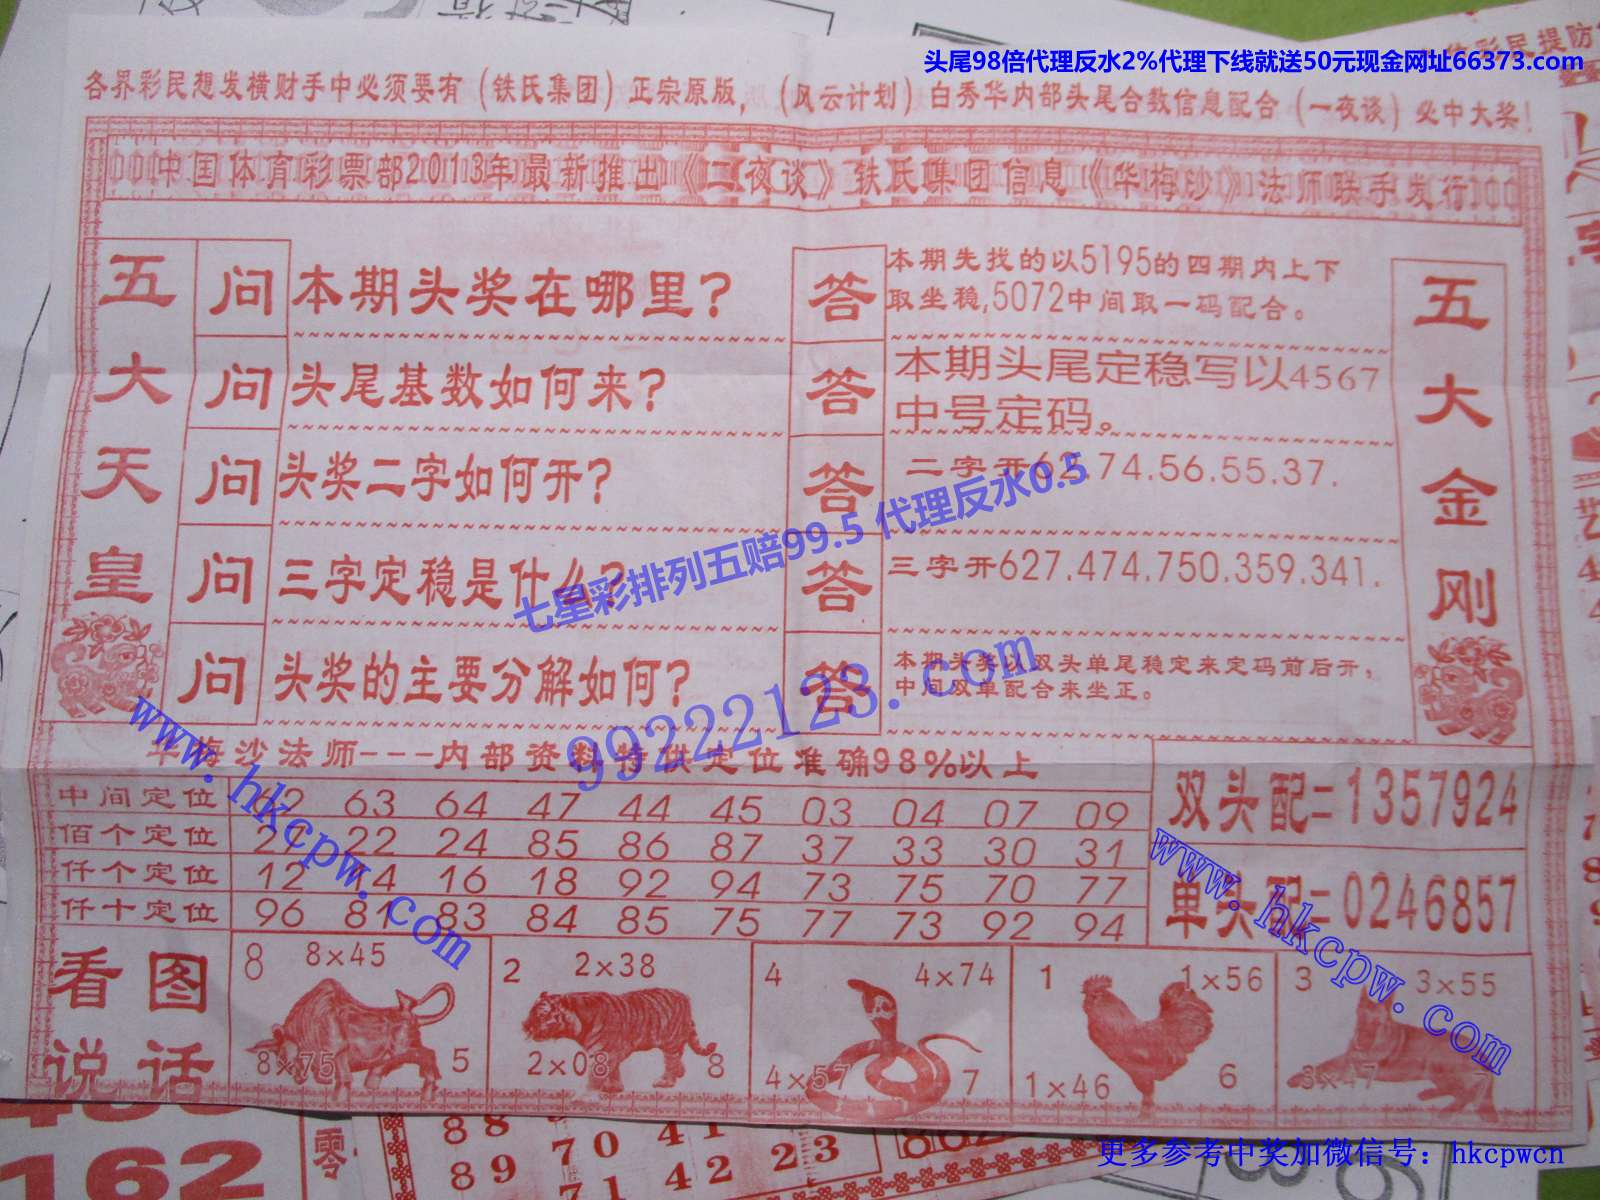 头尾98倍代理反水2%代理下线就送50元现金网址66373.com
各界彩民想发横财手中必须要有（铁氏集团）正宗原版，（风云计划）白秀华内部头尾合数信息配合（一夜谈）必中大奖！
中国体育彩票部2013年最新推出《二夜谈》铁氏集团信息《华梅沙》法师联手发行
五大天皇
问 本期头奖在哪里？
答 本期先找的以5195的四期内上下
取坐稳,5072中间取一码配合。
问 头尾基数如何来？
答 本期头尾定稳写以4567
中号定码。
问 头奖二字如何开？
答 二字开62.74.56.55.37.
问 三字定稳是什么？
答 三字开627.474.750.359.341.
问 头奖的主要分解如何？
答 本期头奖以双头单尾稳定来定码前后开，
中间双单配合来坐正。
五大金刚
七星彩排列五赔99.5 代理反水0.5
99222123.com
www.hkcpw.com
华梅沙法师---内部资料特供定位准确98%以上
中间定位 62 63 64 47 44 45 03 04 07 09
佰个定位 21 22 24 85 86 87 37 33 30 31
仟个定位 12 14 16 18 92 94 73 75 70 77
仟十定位 96 81 83 84 85 75 77 73 92 94
双头配=1357924
单头配=0246857
www.hkcpw.com
看图
说话
8 8×45
8×75 5
2 2×38
2×08 8
4 4×74
4×57 7
1 1×56
1×46 6
3 3×55
3×47 7
162
零
70 41
89 71 42 23
更多参考中奖加微信号：hkcpwcn